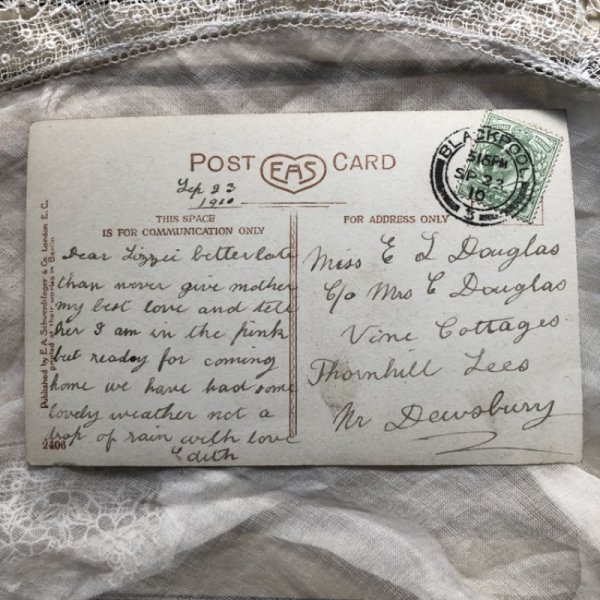 POST EAS CARD
Sep 23
1910
THIS SPACE
IS FOR COMMUNICATION ONLY
FOR ADDRESS ONLY
BLACKPOOL
515PM
SP 23
10
3
Dear Lizzie better late
than never give mother
my best love and tell
her I am in the pink
but ready for coming
home we have had some
lovely weather not a
drop of rain with love
Edith
Miss E L Douglas
C/o Mrs C Douglas
Vine Cottages
Thornhill Lees
Nr Dewsbury
Published by E.A. Schwerdtfeger & Co. London E. C.
Printed at their works in Berlin
2406